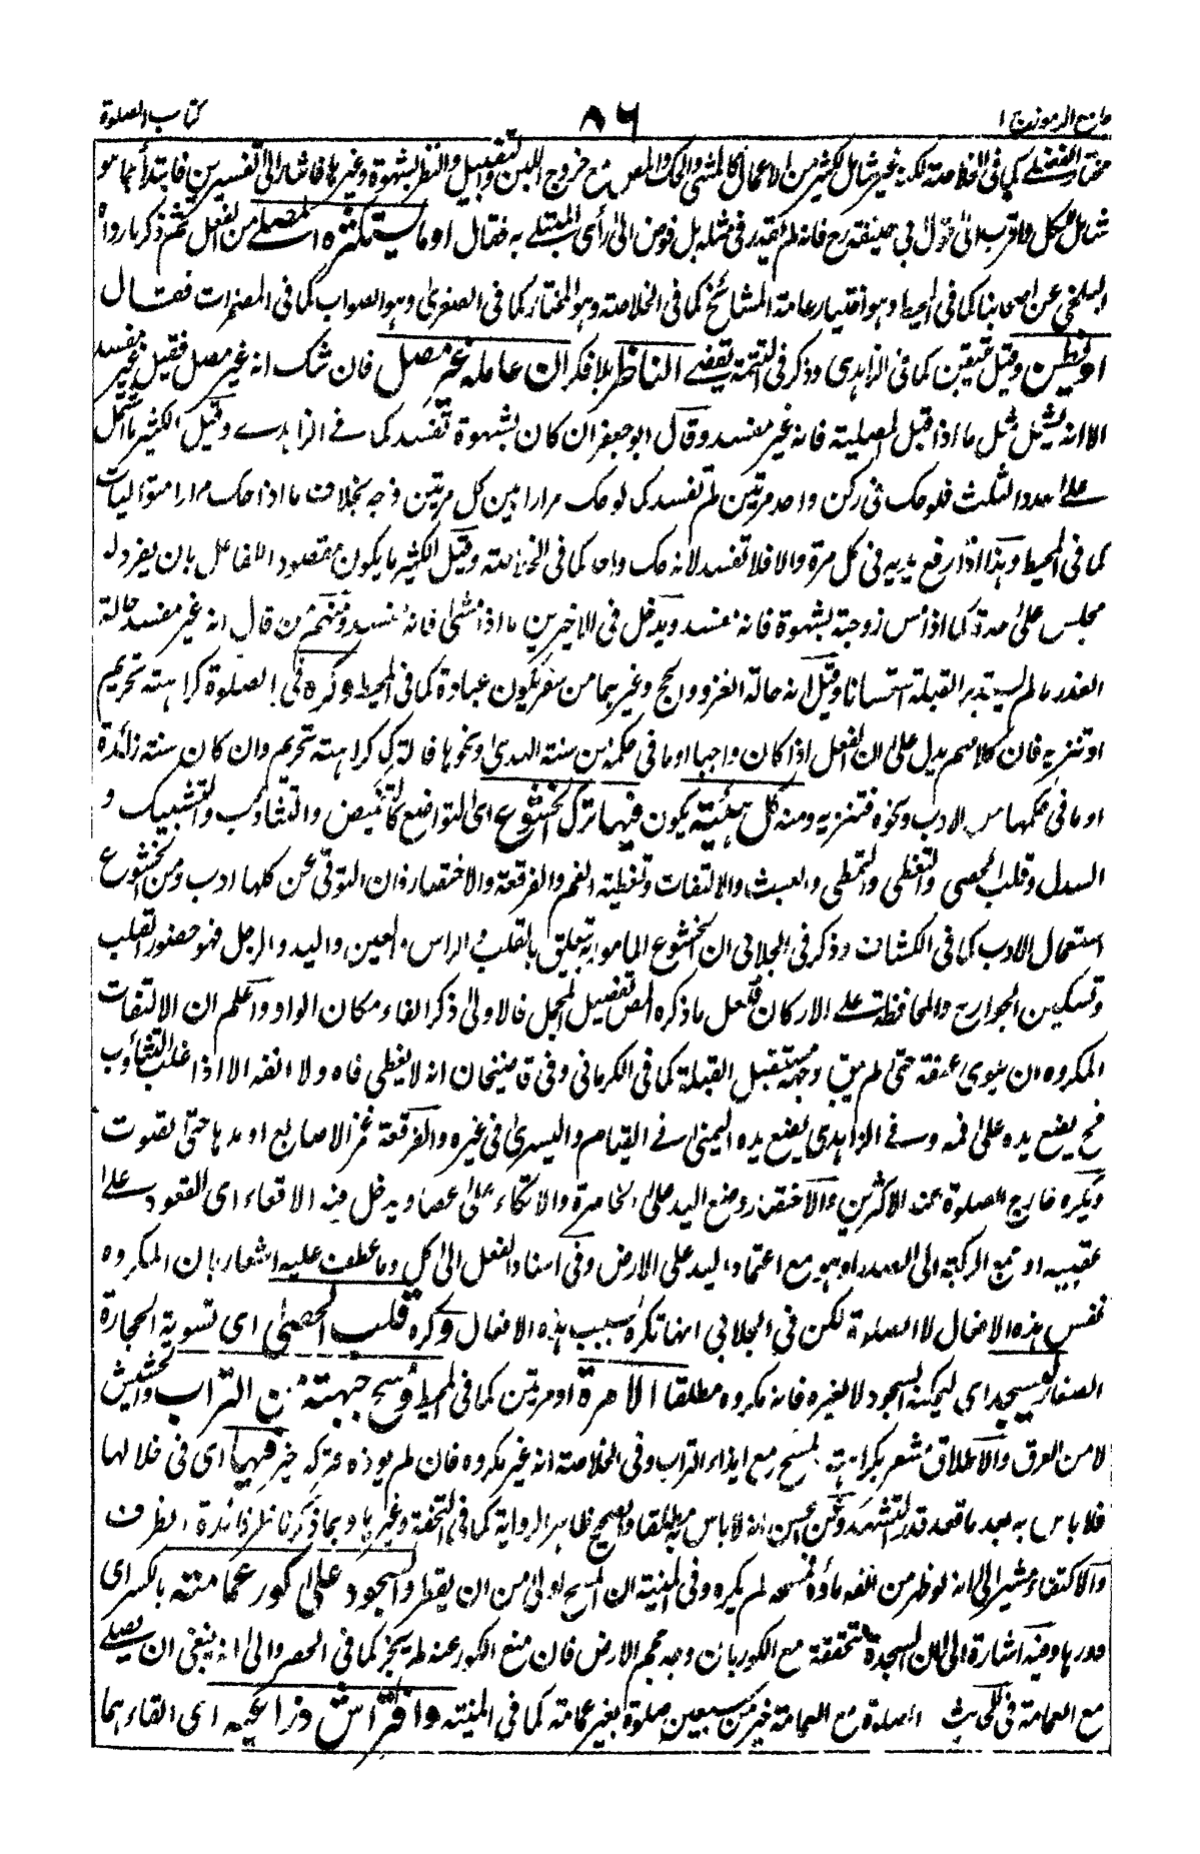 جامع الرموز ج ١
٨٦
كتاب الصلوة
مختار الفضلي كما في الخلاصة لكنه غير شامل لكثير من الاعمال كالمشي والحك والمص مع خروج اللبن والتقبيل والنظر بشهوة وغيرها فاشار الى تفسيرين فابتدأ بما هو
شامل للكل واقرب الى قول ابي حنيفة رح فانه لم يقدر في مثله بل فوض الى رأى المبتلى به فقال او ما يستكثره المصلى من الفعل ثم ذكر ما رواه
البلخي عن اصحابنا كما في المحيط وهو اختيار عامة المشائخ كما في الخلاصة وهو المختار كما في الصغرى وهو الصواب كما في المضمرات فقال
او يظن وقيل يتيقن كما في الزاهدى وذكر في التتمة يقضى الناظر بلا فكر ان عامله غير مصل فان شك انه غير مصل فقيل غير مفسد
الا انه يشكل بمثل ما اذا قبل المصلية فانه غير مفسد وقال ابو جعفر ان كان بشهوة تفسد كما في الزاهدى وقيل الكثير ما اشتمل
على عدد الثلث فلو حك في ركن واحد مرتين لم تفسد كما لو حك مرارا بين كل مرتين فرجة بخلاف ما اذا حك مرارا متواليات
كما في المحيط وهذا اذا رفع يديه في كل مرة والا فلا تفسد لانه حك واحد كما في الخلاصة وقيل الكثير ما يكون مقصود الفاعل بان يفرد له
مجلس على حدة كما اذا مس زوجته بشهوة فانه مفسد ويدخل في الاخيرين ما اذا مشى فانه مفسد ومنهم من قال انه غير مفسد حالة
العذر ما لم يستدبر القبلة استحسانا وقيل انه حالة الغزو والحج وغيرهما من سفر يكون عبادة كما في المحيط وكره في الصلوة كراهته تحريم
او تنزيه فان كلامهم يدل على ان الفعل اذا كان واجبا او ما في حكمه من سنة الهدى ونحوها فالترك كراهته تحريم وان كان سنة زائدة
او ما في حكمها من الادب ونحوه فتنزيه ومنه كل هيئته يكون فيها ترك الخشوع اى التواضع كالتغميض والتثاؤب والتشبيك و
السدل وقلب الحصى والتغطي والتمطي والعبث والالتفات وتغطية الفم والفرقعة والاختصار فان التوقى عن كلها ادب ومن الخشوع
استعمال الادب كما في الكشاف وذكر في الجلابي ان الخشوع المامور به يتعلق بالقلب والراس والعين واليد والرجل فهو حضور القلب
وتسكين الجوارح والمحافظة على الاركان فلعل ما ذكره المص تفصيل المجمل فالاولى ذكر الفاء مكان الواو واعلم ان الالتفات
المكروه ان يلوى عنقه حتى لم يبق وجهه مستقبل القبلة كما في الكرماني وفي قاضيخان انه لا يغطى فاه ولا انفه الا اذا غلبه التثاؤب
فح يضع يده على فمه وفى الزاهدى يضع يده اليمنى فى القيام واليسرى في غيره والفرقعة غمز الاصابع او مدها حتى تصوت
ويكره خارج الصلوة عند الاكثرين والاختصار وضع اليد على الخاصرة والاتكاء على عصا ويدخل فيه الاقعاء اى القعود على
عقبيه او جمع الركبة الى الصدر او هو مع اعتماد اليد على الارض وفى اسناد الفعل الى كل وما عطف عليه اشعار بان المكروه
نفس هذه الافعال لا الصلوة لكن في الجلابي انها تكره بسبب هذه الافعال وكره قلب الحصى اى تسوية الحجارة
الصغار ليسجد اى ليمكنه السجود لا لغيره فانه مكروه مطلقا الا مرة او مرتين كما في المحيط ومسح جبهته من التراب والحشيش
لا من العرق والاطلاق مشعر بكراهته المسح مع ايذاء التراب وفى الخلاصة انه غير مكروه فان لم يوذه فتركه خير فيها اى فى خلالها
فلا باس به بعد ما قعد قدر التشهد وعن الحسن انه لا باس به مطلقا والصحيح ظاهر الرواية كما في التحفة وغيرها وبما ذكرنا ظهر فائدة الظرف
والاكتفاء مشير الى انه لو ظهر من انفه ماؤه فمسحه لم يكره وفى المنية ان المسح اولى من ان يقطر والسجود على كور عمامته بالكسر اى
دورها وفيه اشارة الى ان السجدة متحققة مع الكور بان وجد حجم الارض فان منع الكور عنه لم يجز كما في الحصر والى انه ينبغي ان يصلى
مع العمامة فى الحديث الصلوة مع العمامة خير من سبعين صلوة بغير عمامة كما في المنية وافتراش ذراعيه اى القاءهما